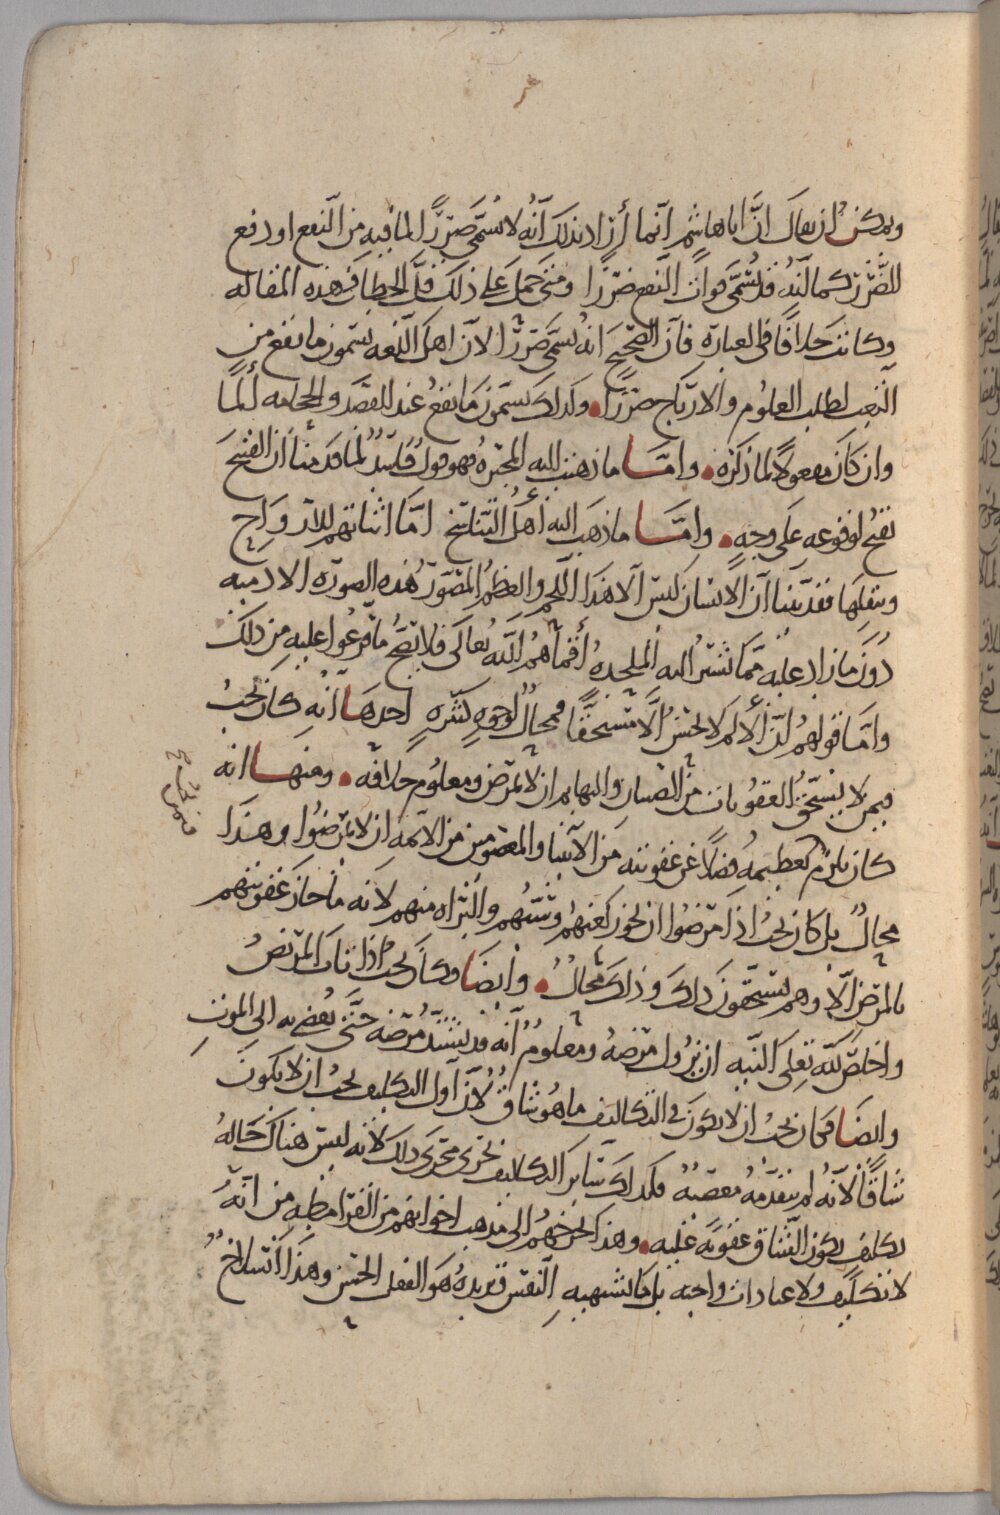 ويمكن ان يقال انّ ابا هاشم انما أراد بذلك أنّه لا يُسمّى ضررًا لما فيه من النّفع او دفع
الضّرر كما انّه قد يُسمّى فوات النفع ضررًا ومتى حمل على ذلك قلّ الخطا في هذه المقاله
وكانت خلافًا في العبارة فانّ الصّحيح انه يسمّى ضررًا لانّ اهل اللّغه يسمّون ما يقع من
التعب لطلب العلوم والارباح ضررًا وكذلك يسمّون ما يقع عند الفصد والحجامه ألمًا
وان كان مفعولًا لما ذكره وامّا ما ذهبت اليه المجبره فهو قول فاسدٌ لما قدمنا أن القبيح
يقبح لوقوعه على وجهٍ وامّا ما ذهب اليه أهل التّناسخ امّا اثباتهم للارواح
ونقلها فقد بيّنا انّ الانسان ليس الا هذا اللّحم والعظم المصوّر هذه الصورة الادميه
دون ما زاد عليه ممّا تشير اليه الملحدة أقماهم الله تعالى فلا يصحّ ما فرّعوا عليه من ذلك
وامّا قولهم انّ الألم لا يحسن الّا مستحقًّا فمحالٌ لوجوهٍ كثيره احدها انه كان يجبُ
فيمن لا يستحقّ العقوبات من الصبيان والبهايم ان لا تمرض ومعلوم خلافه ومنها انه
كان يلزم تعظيمه فضلًا عن عقوبته من الانبيا والمعصومين من الائمه ان لا يمرضوا وهذا
محالٌ بل كان يجب اذا مرضوا ان يجوز لعنهم وسبّهم والبراه منهم لانه ما جاز عقوبتهم
بالمرض الّا وهم يستحقّون ذلك وذلك محالٌ وأيضا وكان يجب اذا تاب المريض
واخلص لله تعالى النيّه ان يزول مرضه ومعلومٌ أنّه قد يشتدّ مرضه حتّى يفضي به الى الموت
وايضا فكان يجب ان لا يكون في التكاليف ما هو شاقٌّ لانّ اوّل التكليف يجب ان لا يكون
شاقًّا لانّه لم يتقدّمه معصيةٌ فكذلك سائر التكاليف تجري مجرى ذلك لانه ليس هناك حالة
تكليف يكون الشّاق عقوبة عليه وهذا يُخرجهم الى مذهب اخوانهم من القرامطه من انّه
لا تكليف ولا عبادات واجبه بل ما تشتهيه النّفس وتريده هو الفعل الحسن وهذا انسلاخٌ